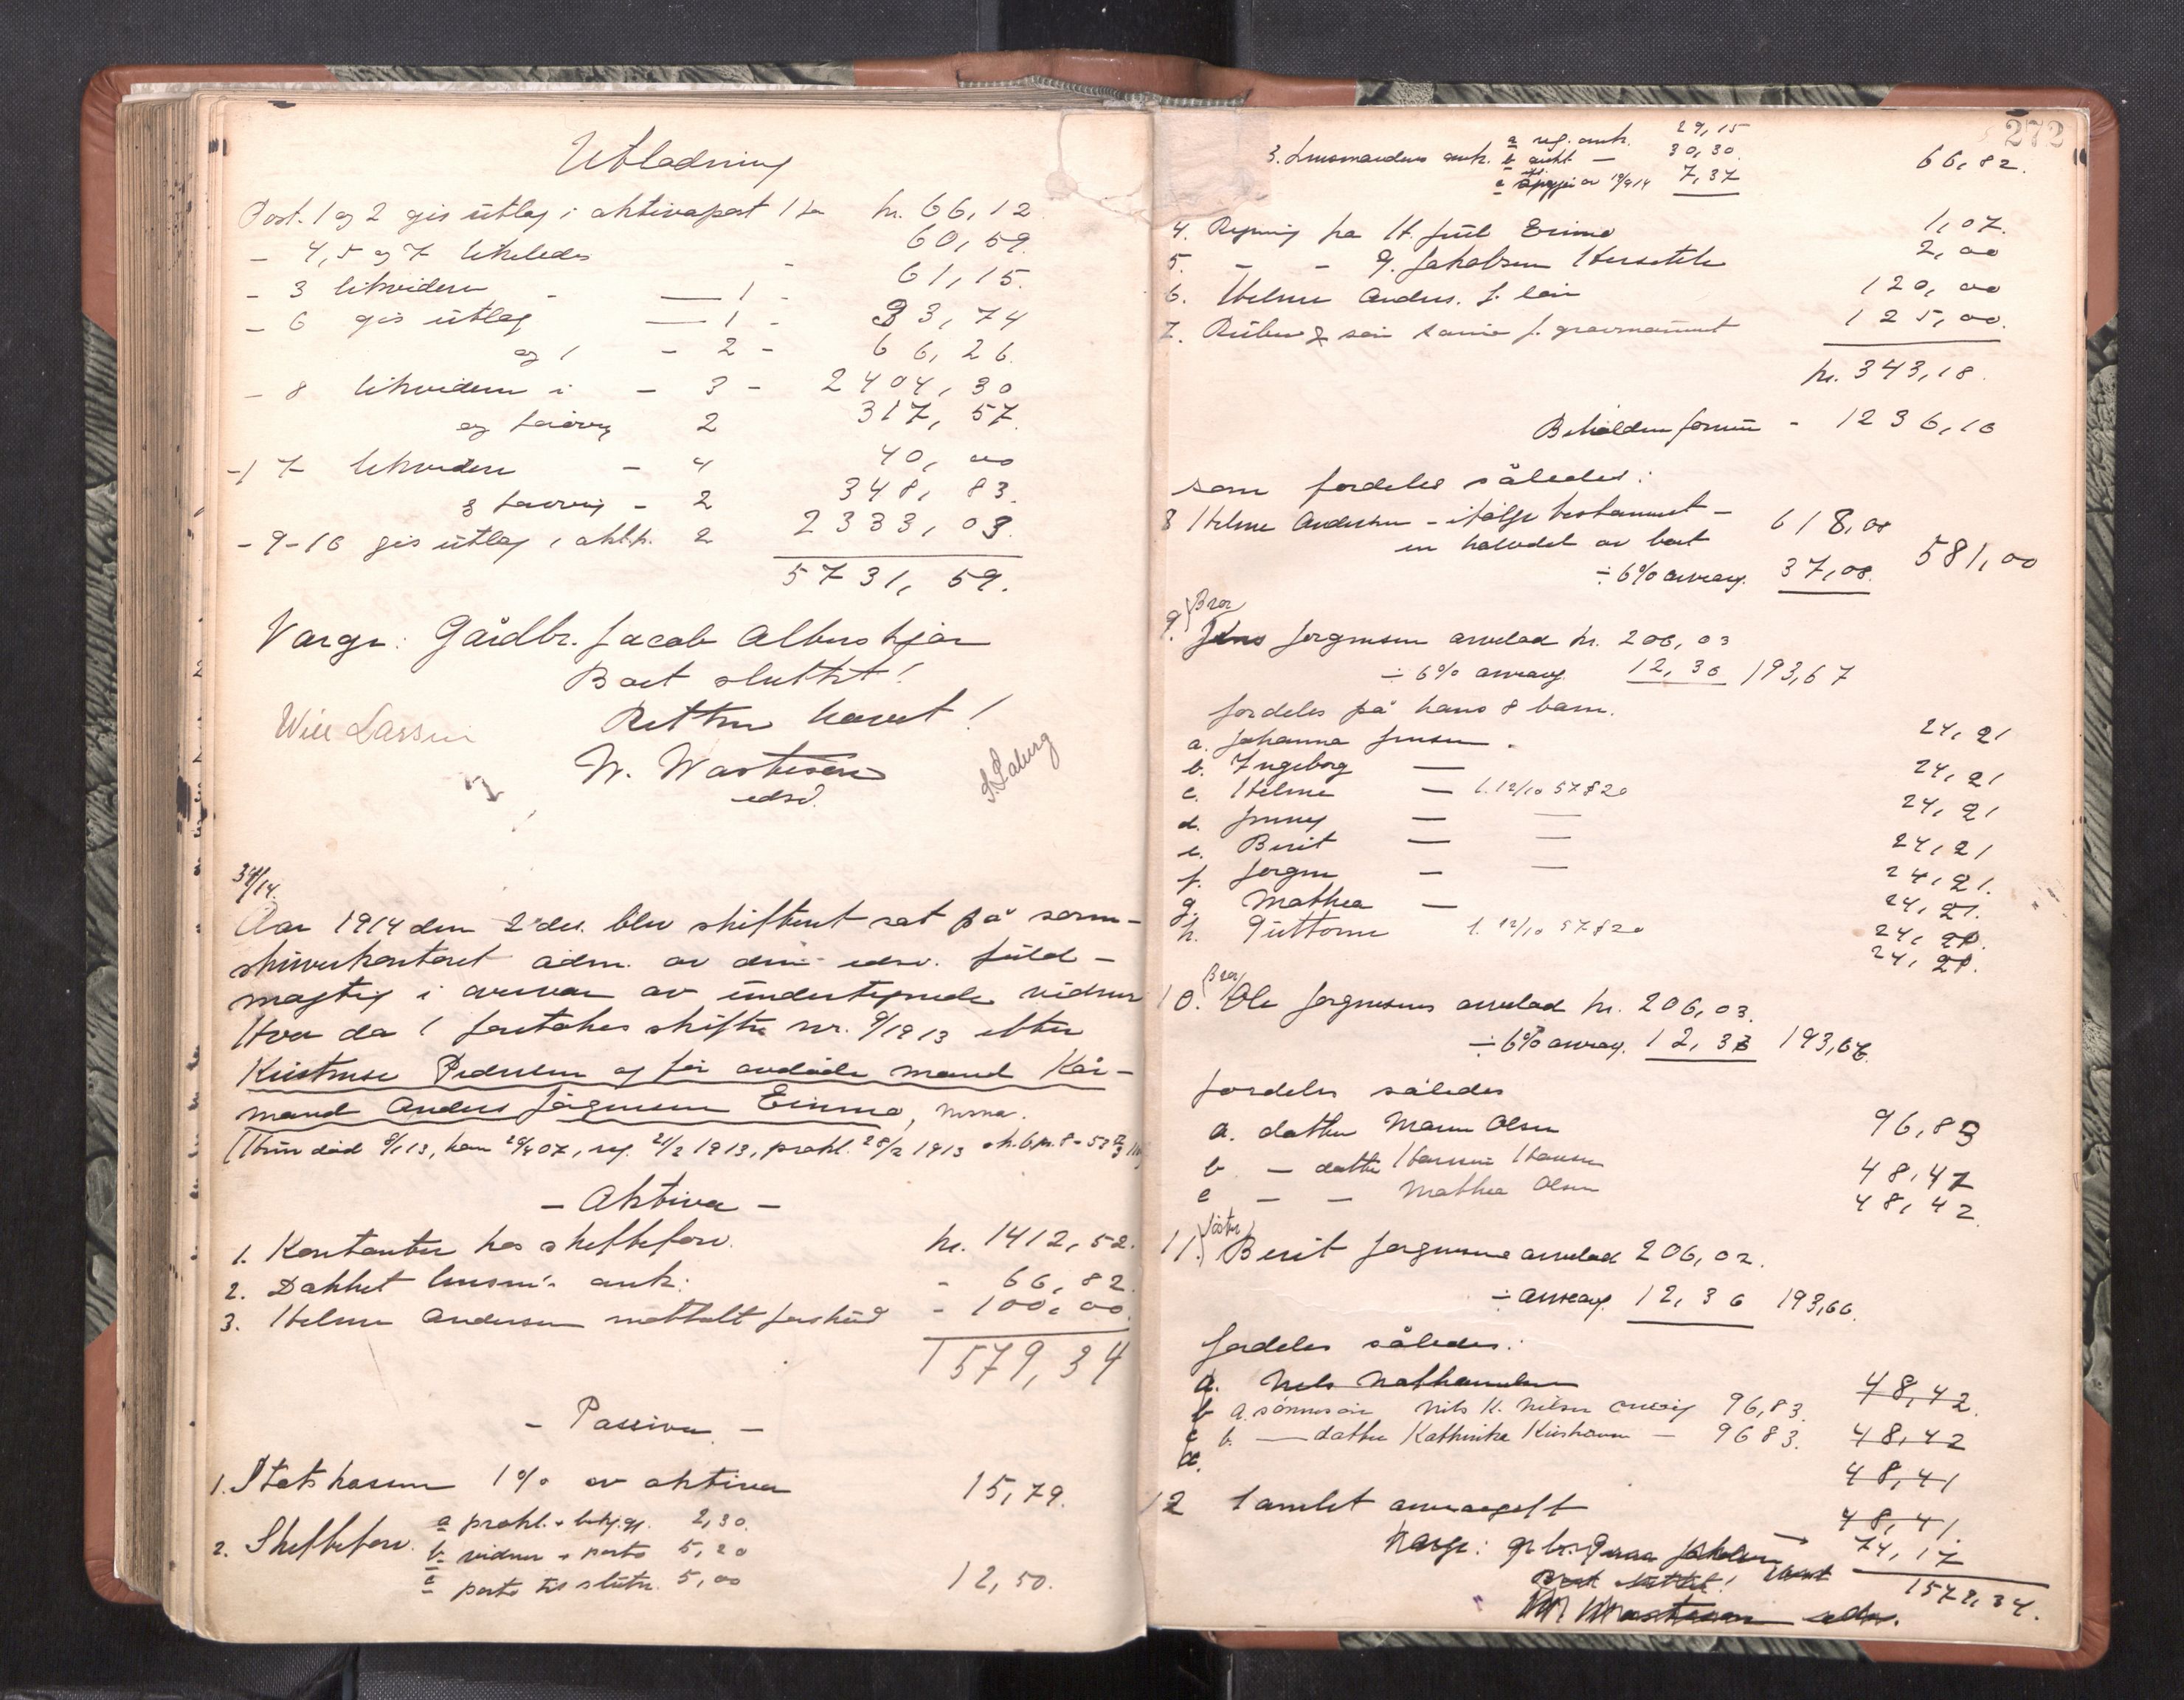 Utlodning
Post. 1 og 2 gis utlæg i aktivapost 1 kr. 66,12
- 4, 5 og 7 likeledes - 60,59
- 3 likvideres - — 1 - 61,15.
- 6 gis utlæg — 1 - 33,74
og i - 2 - 66,26.
- 8 likvideres i - 3 - 2404,30
og forøvrig 2 317,57.
- 17 likvideres - 4 40,00
og forøvrig - 2 348,83.
- 9-16 gis utlæg i aktp. 2 2333,03.
5731,59.
Værge: Gårdbr. Jacob Albuskjær
Boet sluttet!
Retten hævet!
Will Larsen
W. Wasteson
edsv.
Aar 1914 den 2 des. blev skifteret sat på soren-
skriverkontoret adm. av den edsv. fuld-
mægtig i overvær av undertegnede vidner
Hvor da 1 foretokes skifte nr. 9/1913 efter
Kirstense Pedersen og før avdøde mand Kår-
mand Anders Jørgensen Eimo,
(Hun død 8/1 13, han 29/4 07, reg. 21/2 1913, prokl. 28/2 1913
- Aktiva -
1. Kontanter hos skifteforv. kr. 1412,52.
2. Dækket lensm's ank: - 66,82
3. Helmer Andersen mottatt forskud - 100,00.
1579,34
- Passiva -
1. Statskassen 1% av aktiva 15,79.
2. Skifteforv. a prokl. + 2,30.
b. vidner + porto 5,20
c porto til slutn. 5,00 12,50.
272
3. Lensmandens ank. a reg. ank. 29,15
b aukt — 30,30.
c av 19/9 14 7,37 66,82.
4. Regning fra H. Juul Eimo 1,07.
5. - - J. Jakobsen 2,00
6. Helmer Anders. f. lån 120,00
7. samme f. gravmonument 125,00.
kr. 343,18.
Beholden formue - 1236,16
som fordeles således:
8 Helmer Andersen - ifølge testament - 618,08
en halvdel av boet
÷ 6% arveavg. 37,08. 581,00
9. Bror Jens Jørgensen arvelod kr. 206,03
÷ 6% arveavg. 12,36 193,67
fordeles på hans 8 barn.
a. Johanna Jensen. 24,21
b. Ingeborg — 24,21
c. Helmer — f. 12/10 57 § 20 24,21
d. Jenny — — 24,21
e. Berit — — 24,21.
f. Jørgen — — 24,21.
g. Mathea — 24,20.
h. Guttorm f. 12/10 57 § 20 24,20.
10. Bror Ole Jørgensens arvelod kr. 206,03.
÷ 6% arveavg. 12,37 193,66
fordeles således
a. datter Maren Olsen 96,83
b - datter Hansine Hansen 48,42
c - - Mathea Olsen 48,42
11. Søster Berit Jørgensens arvelod 206,02.
÷ arveavg. 12,36 193,66.
fordeles således:
a. Nels Nathanielsen 48,42.
b a. sønnesøn Nils K. Nilsen 96,83. 48,42
c b. — datter Kathinka — 96 83. 48,41
d. 48,41.
12 Samlet arveavgift 74,17
Værge: gr.br. Jakobsen
Boet sluttet! 1579,34.
W. Wasteson edsv.